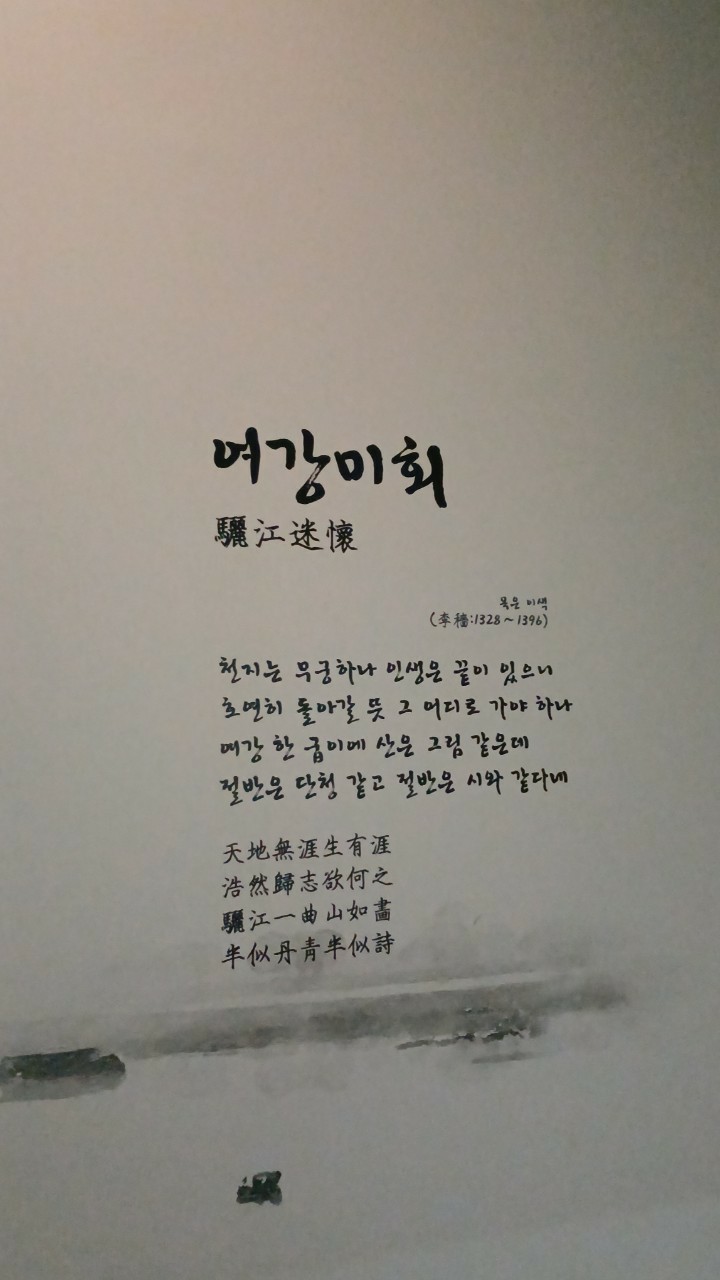 여강미회
驪江迷懷
목은 이색
(李穡:1328~1396)
천지는 무궁하나 인생은 끝이 있으니
호연히 돌아갈 뜻 그 어디로 가야 하나
여강 한 굽이에 산은 그림 같은데
절반은 단청 같고 절반은 시와 같다네
天地無涯生有涯
浩然歸志欲何之
驪江一曲山如畵
半似丹靑半似詩